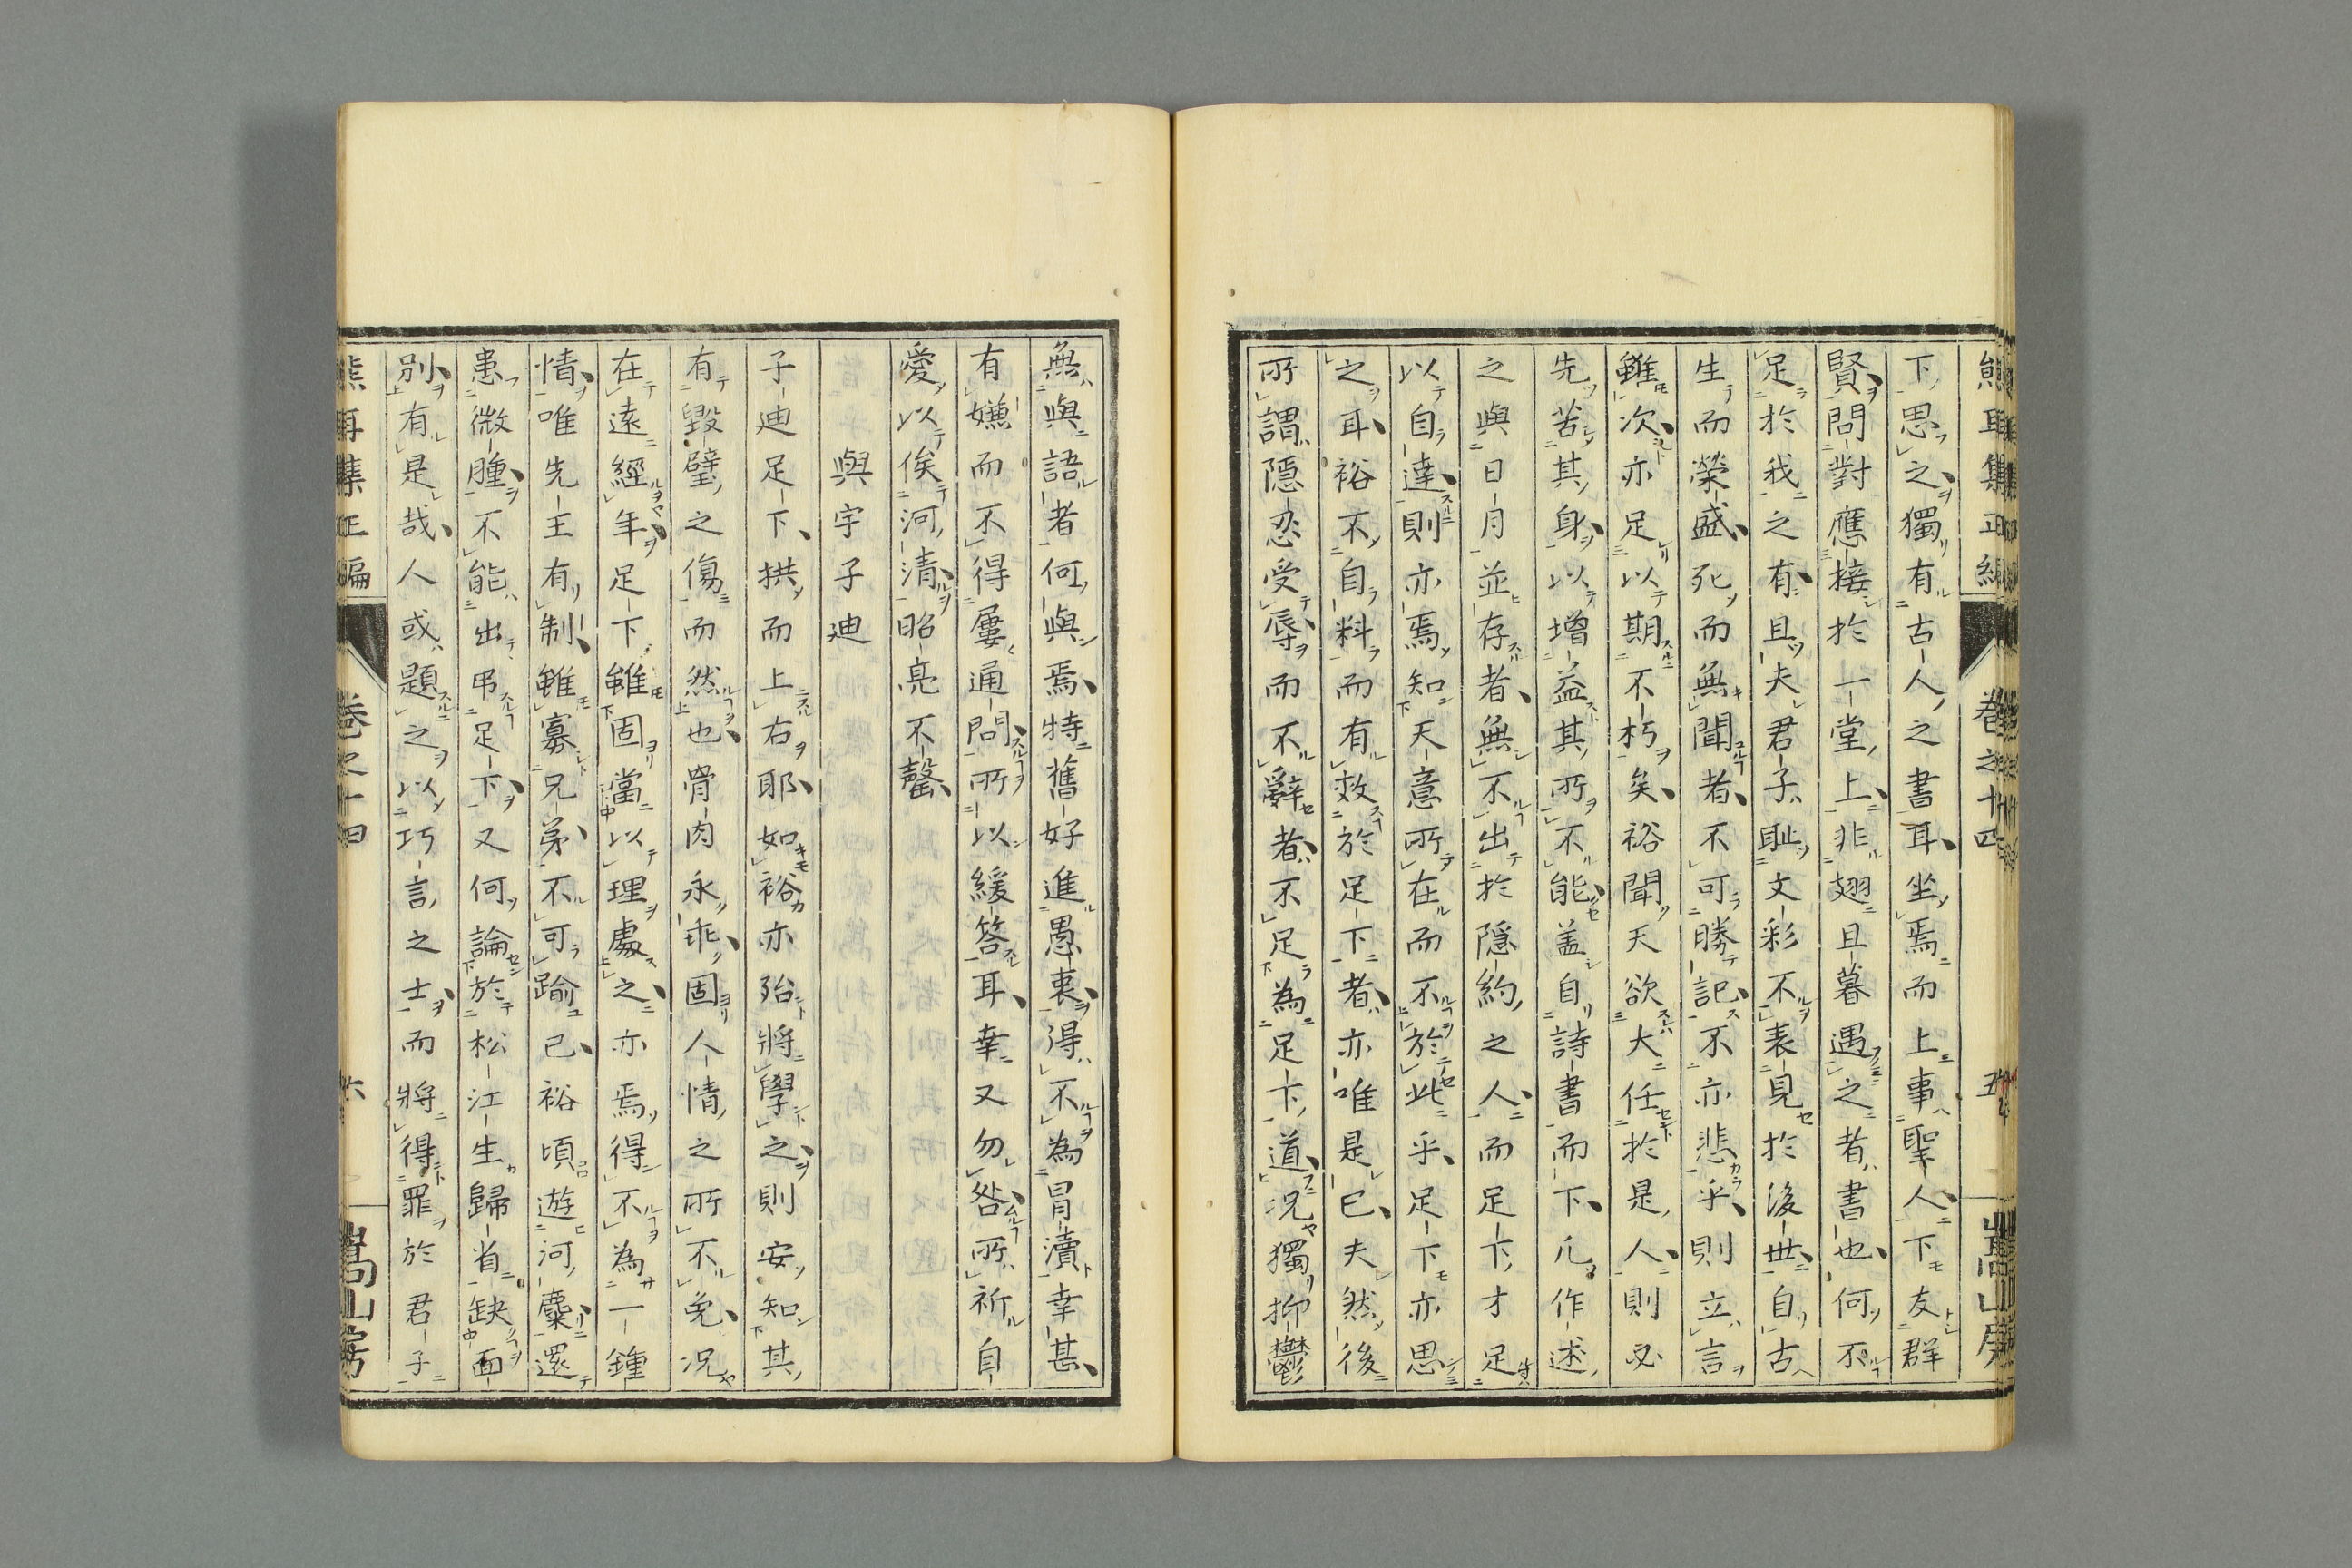 熊耳集正編 卷之十四 五 嵩山房
下思之獨有古人之書耳坐焉而上事聖人下友群
賢問對應接於一堂上非翅旦暮遇之者書也何不
足於我之有且夫君子耻文彩不表見於後世自古
生而榮盛死而無聞者不可勝記不亦悲乎則立言
雖次亦足以期不朽矣裕聞天欲大任於是人則必
先苦其身以增益其所不能盖自詩書而下凡作述
之與日月並存者無不出於隱約之人而足下才足
以自達則亦焉知天意所在而不於此乎足下亦思
之耳裕不自料而有效於足下者亦唯是已夫然後
所謂隱忍受辱而不辭者不足為足下道况獨抑鬱
無與語者何與焉特舊好進愚衷得不為冒瀆幸甚
有嫌而不得屢通問所以緩答耳幸又勿咎所祈自
愛以俟河清昭亮不罄
與宇子迪
子迪足下拱而上右耶如裕亦殆將學之則安知其
有毀璧之傷而然也骨肉永乖固人情之所不免况
在遠經年足下雖固當以理處之亦焉得不為一鍾
情唯先王有制雖寡兄弟不可踰已裕頃遊河麋還
患微腫不能出弔足下又何論於松江生歸省缺面
別有是哉人或題之以巧言之士而將得罪於君子
熊耳集正編 卷之十四 六 嵩山房